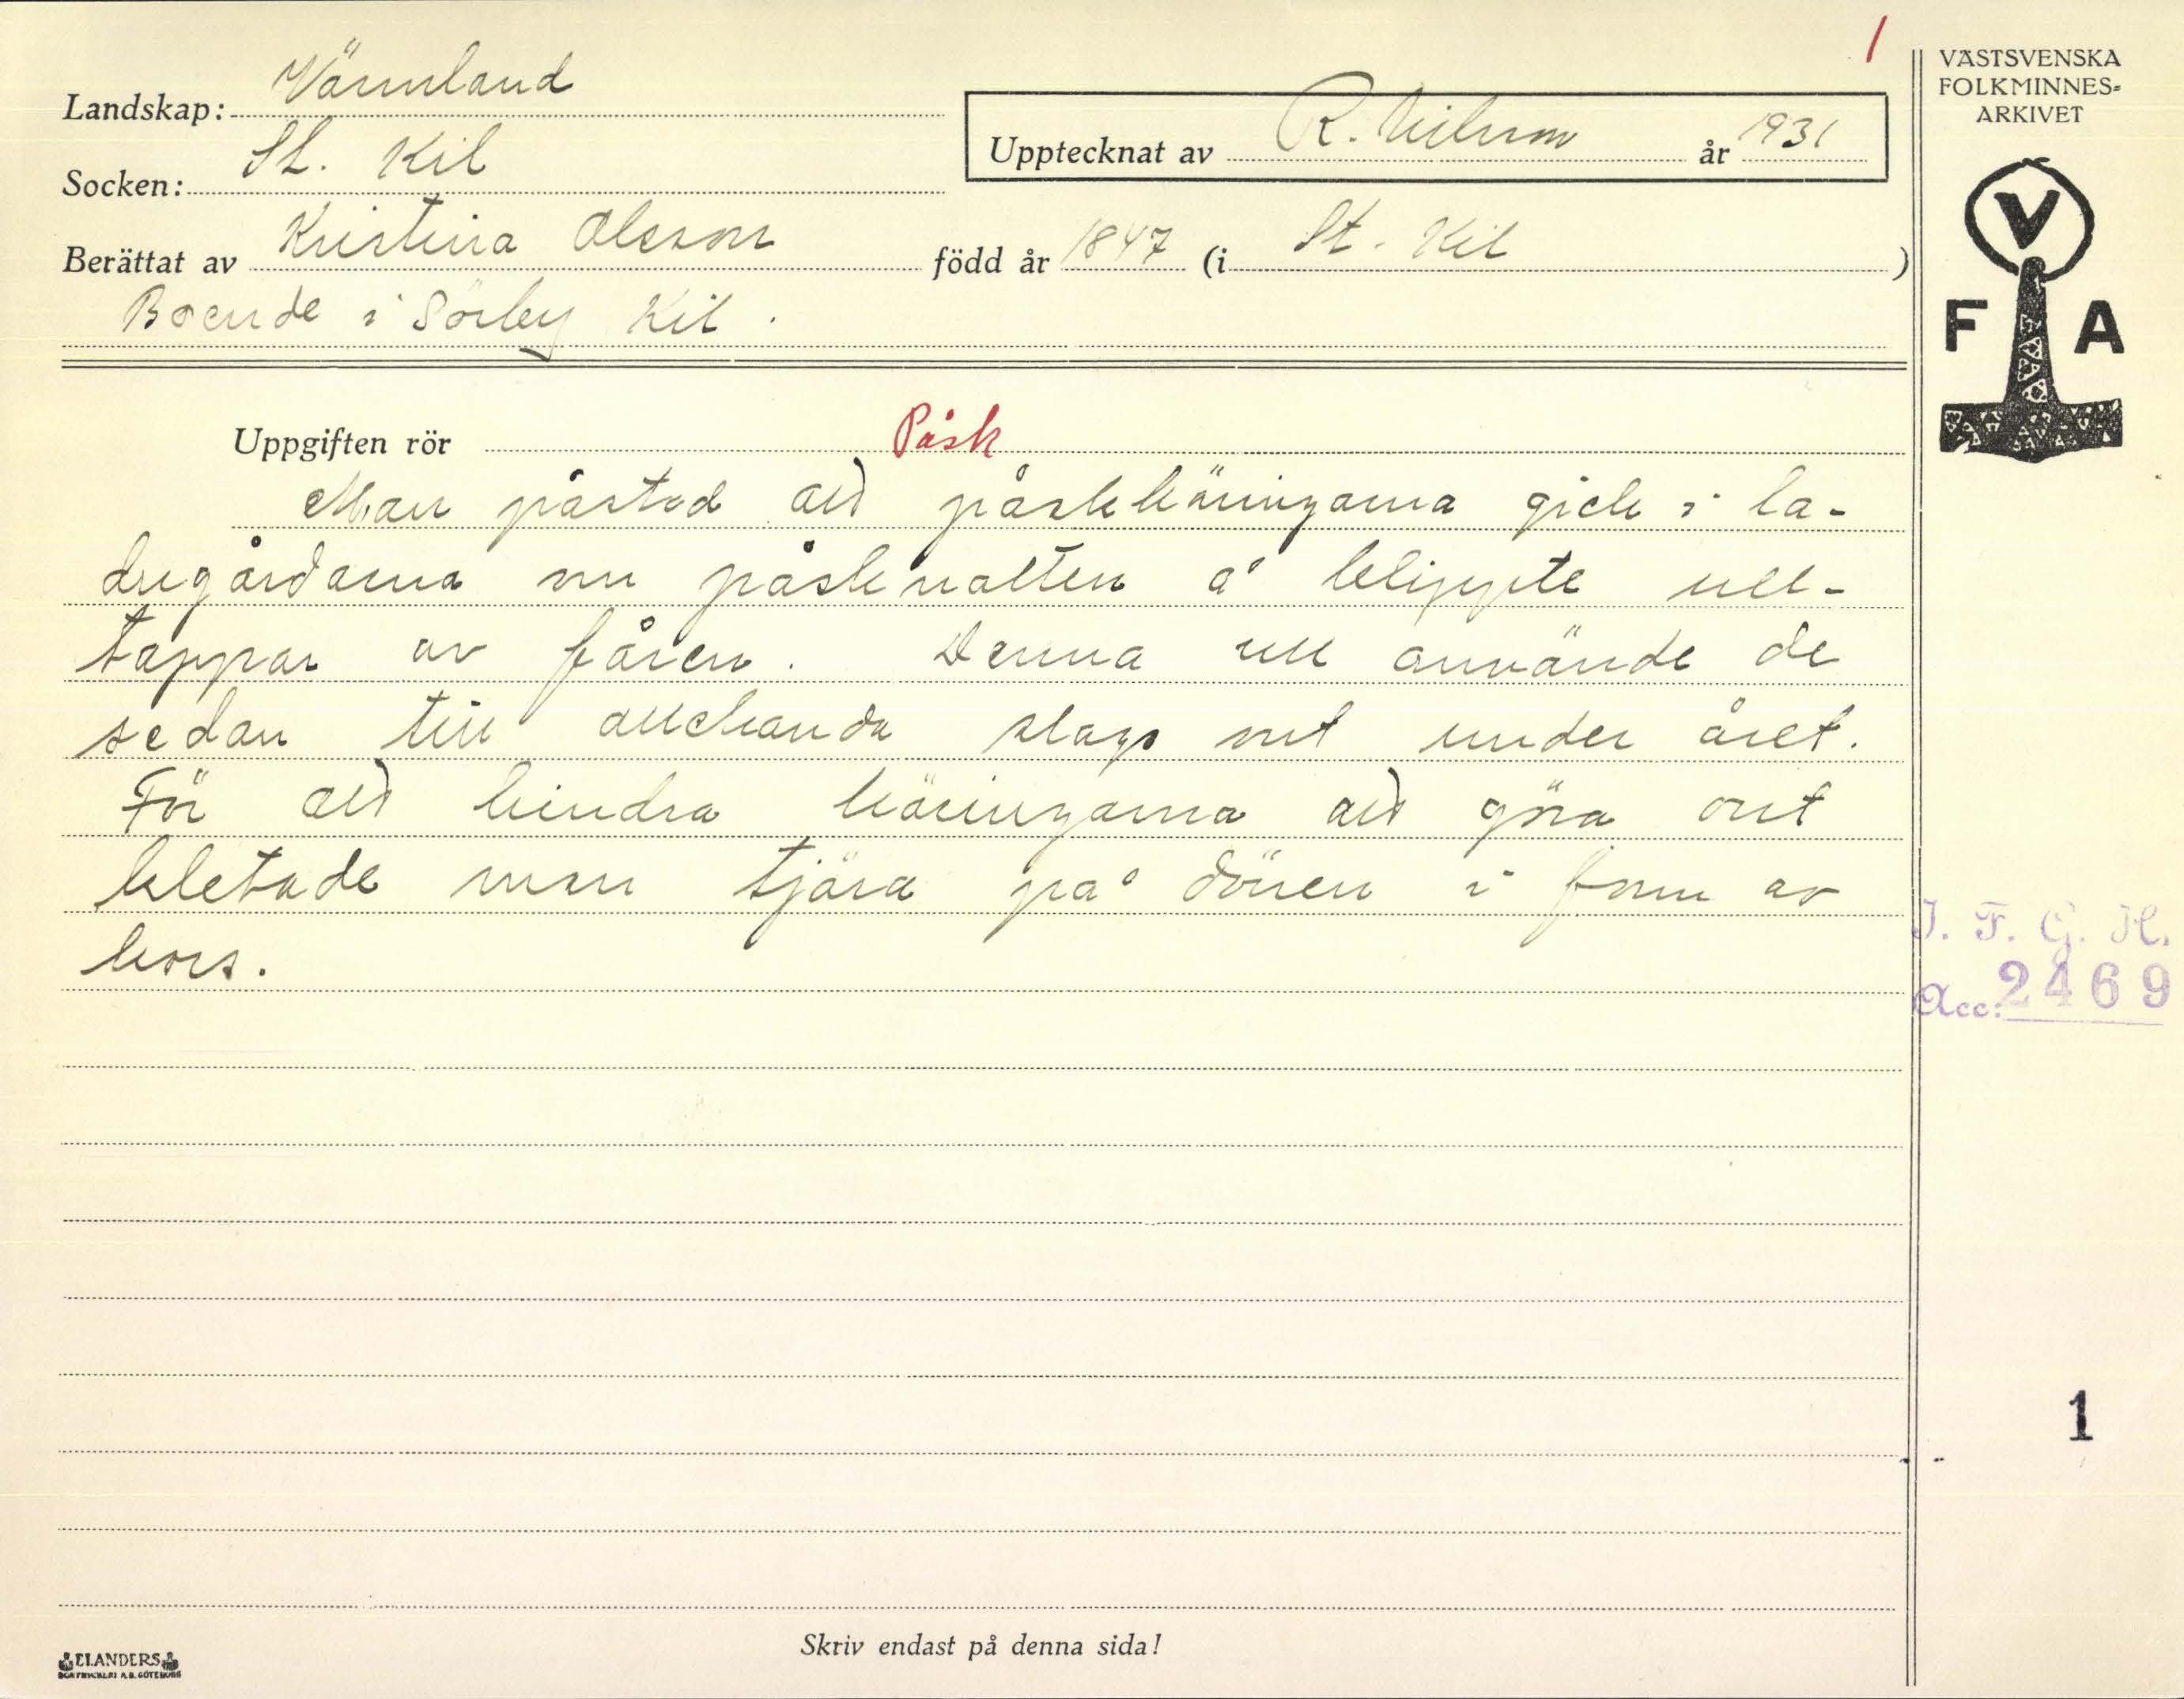 1
VÄSTSVENSKA
FOLKMINNES-
ARKIVET
Landskap: Värmland
Upptecknat av R. Nilsson år 1931
Socken: St. Kil
Berättat av Kristina Olsson född år 1847 (i St. Kil)
Boende i Sörby Kil.
V
F A
Uppgiften rör Påsk
Man påstod att påskkäringarna gick i la-
dugårdarna om påsknatten å klippte ull-
tappar av fåren. Denna ull använde de
sedan till allehanda slags ont under året.
För att hindra käringarna att göra ont
kletade man tjära på dörren i form av
kors.
I. F. G. H.
Acc: 2469
1
Skriv endast på denna sida!
ELANDERS
BOKTRYCKERI A.B. GÖTEBORG